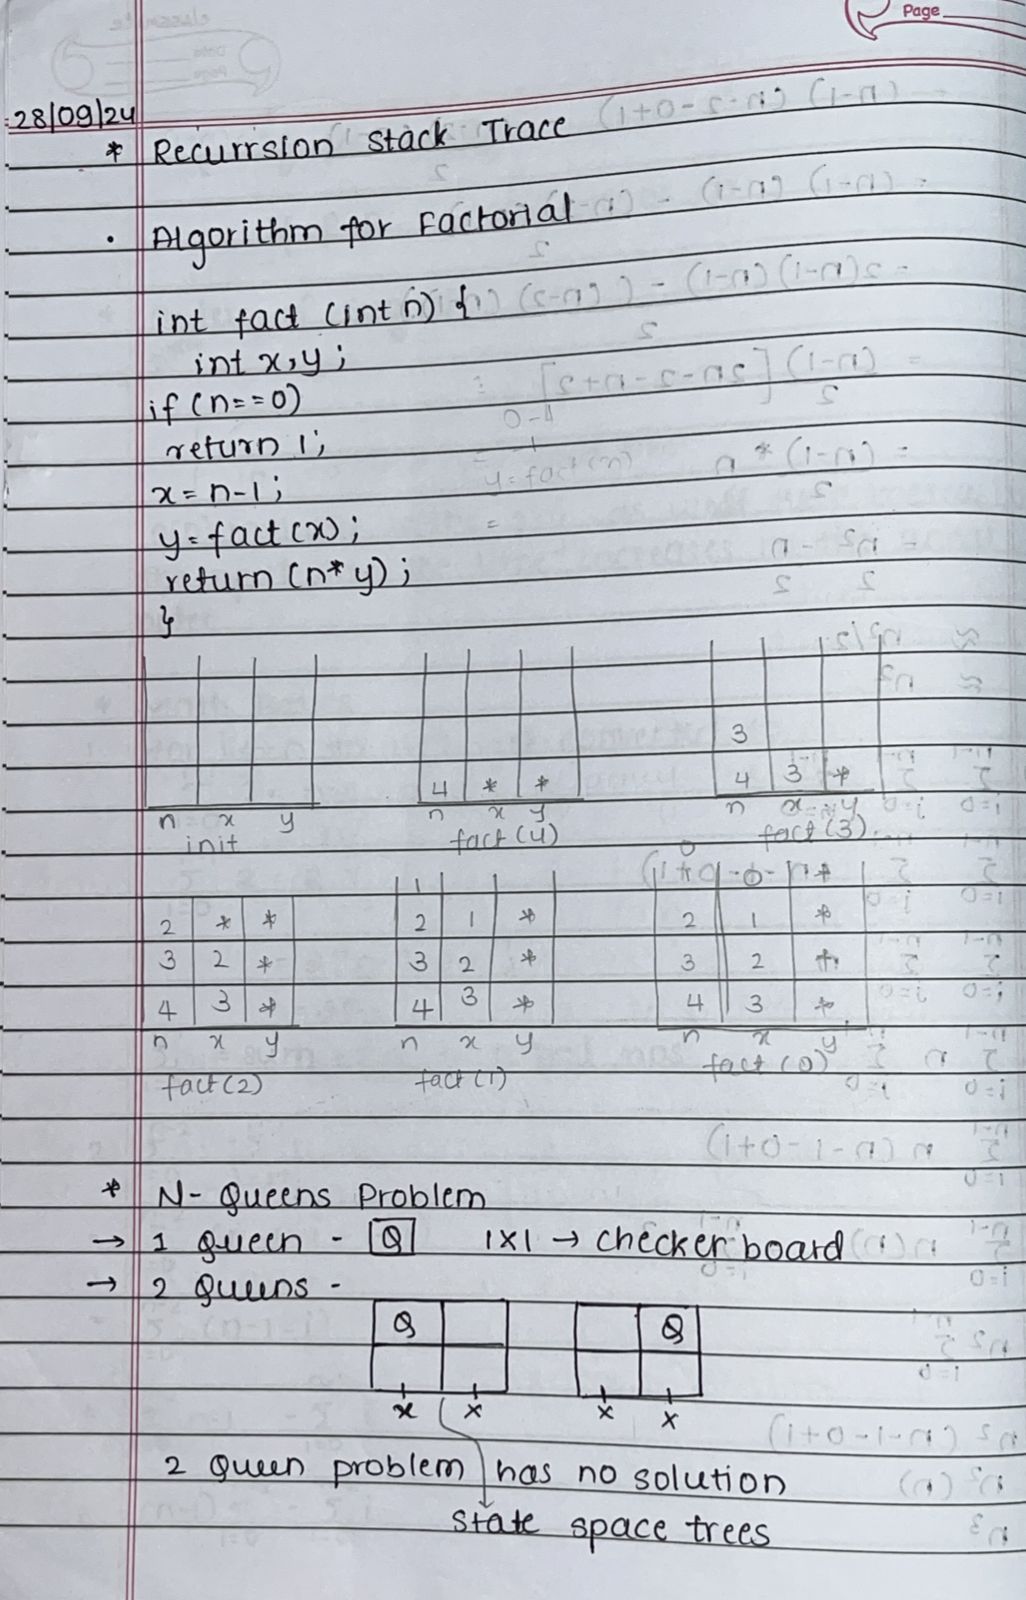 Page
28/09/24
* Recurrsion Stack Trace
· Algorithm for Factorial
int fact (int n) {
int x,y;
if (n==0)
return 1;
x = n-1;
y = fact(x);
return (n*y);
}
n x y
init
4 * *
n x y
fact(4)
3
4 3 *
n x y
fact(3)
2 * *
3 2 *
4 3 *
n x y
fact(2)
1
2 1 *
3 2 *
4 3 *
n x y
fact(1)
0
1 0 *
2 1 *
3 2 *
4 3 *
n x y
fact(0)
* N- Queens Problem
→ 1 queen - Q 1x1 → checker board
→ 2 Queens -
Q Q
x x x x
2 Queen problem has no solution
state space trees